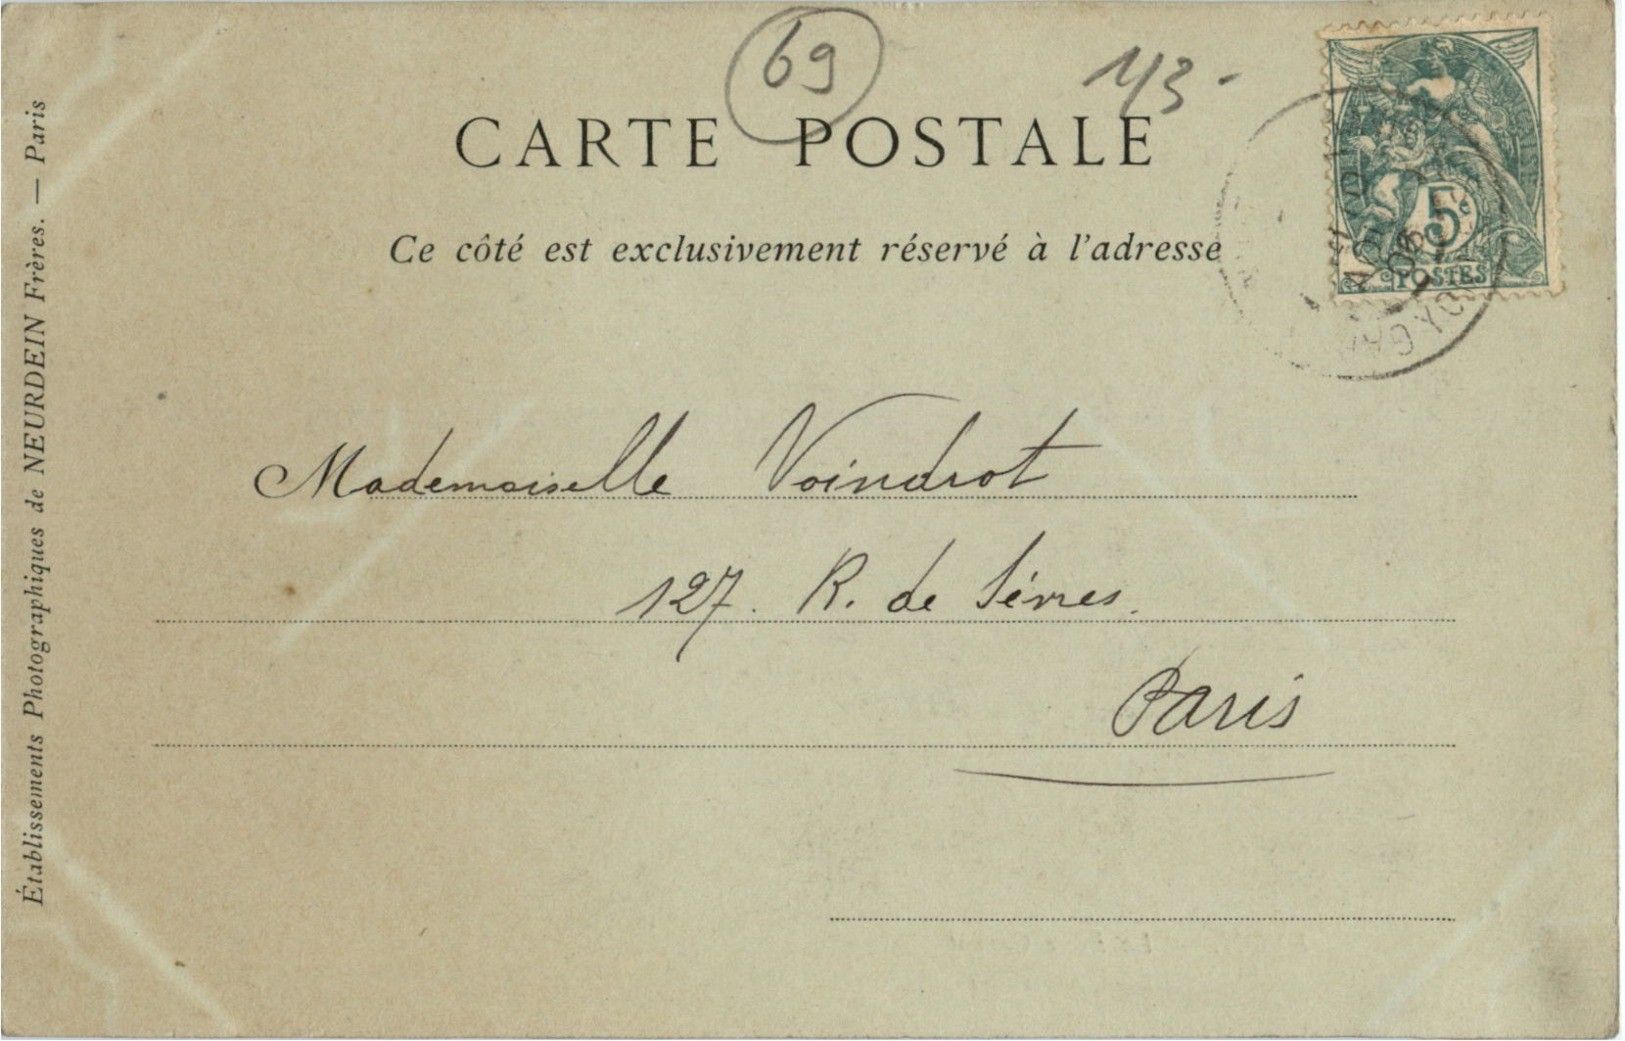 69
1/3-
CARTE POSTALE
Ce côté est exclusivement réservé à l'adresse
5c
POSTES
Mademoiselle Voindrot
127. R. de Sévres.
Paris
Établissements Photographiques de NEURDEIN Frères. — Paris